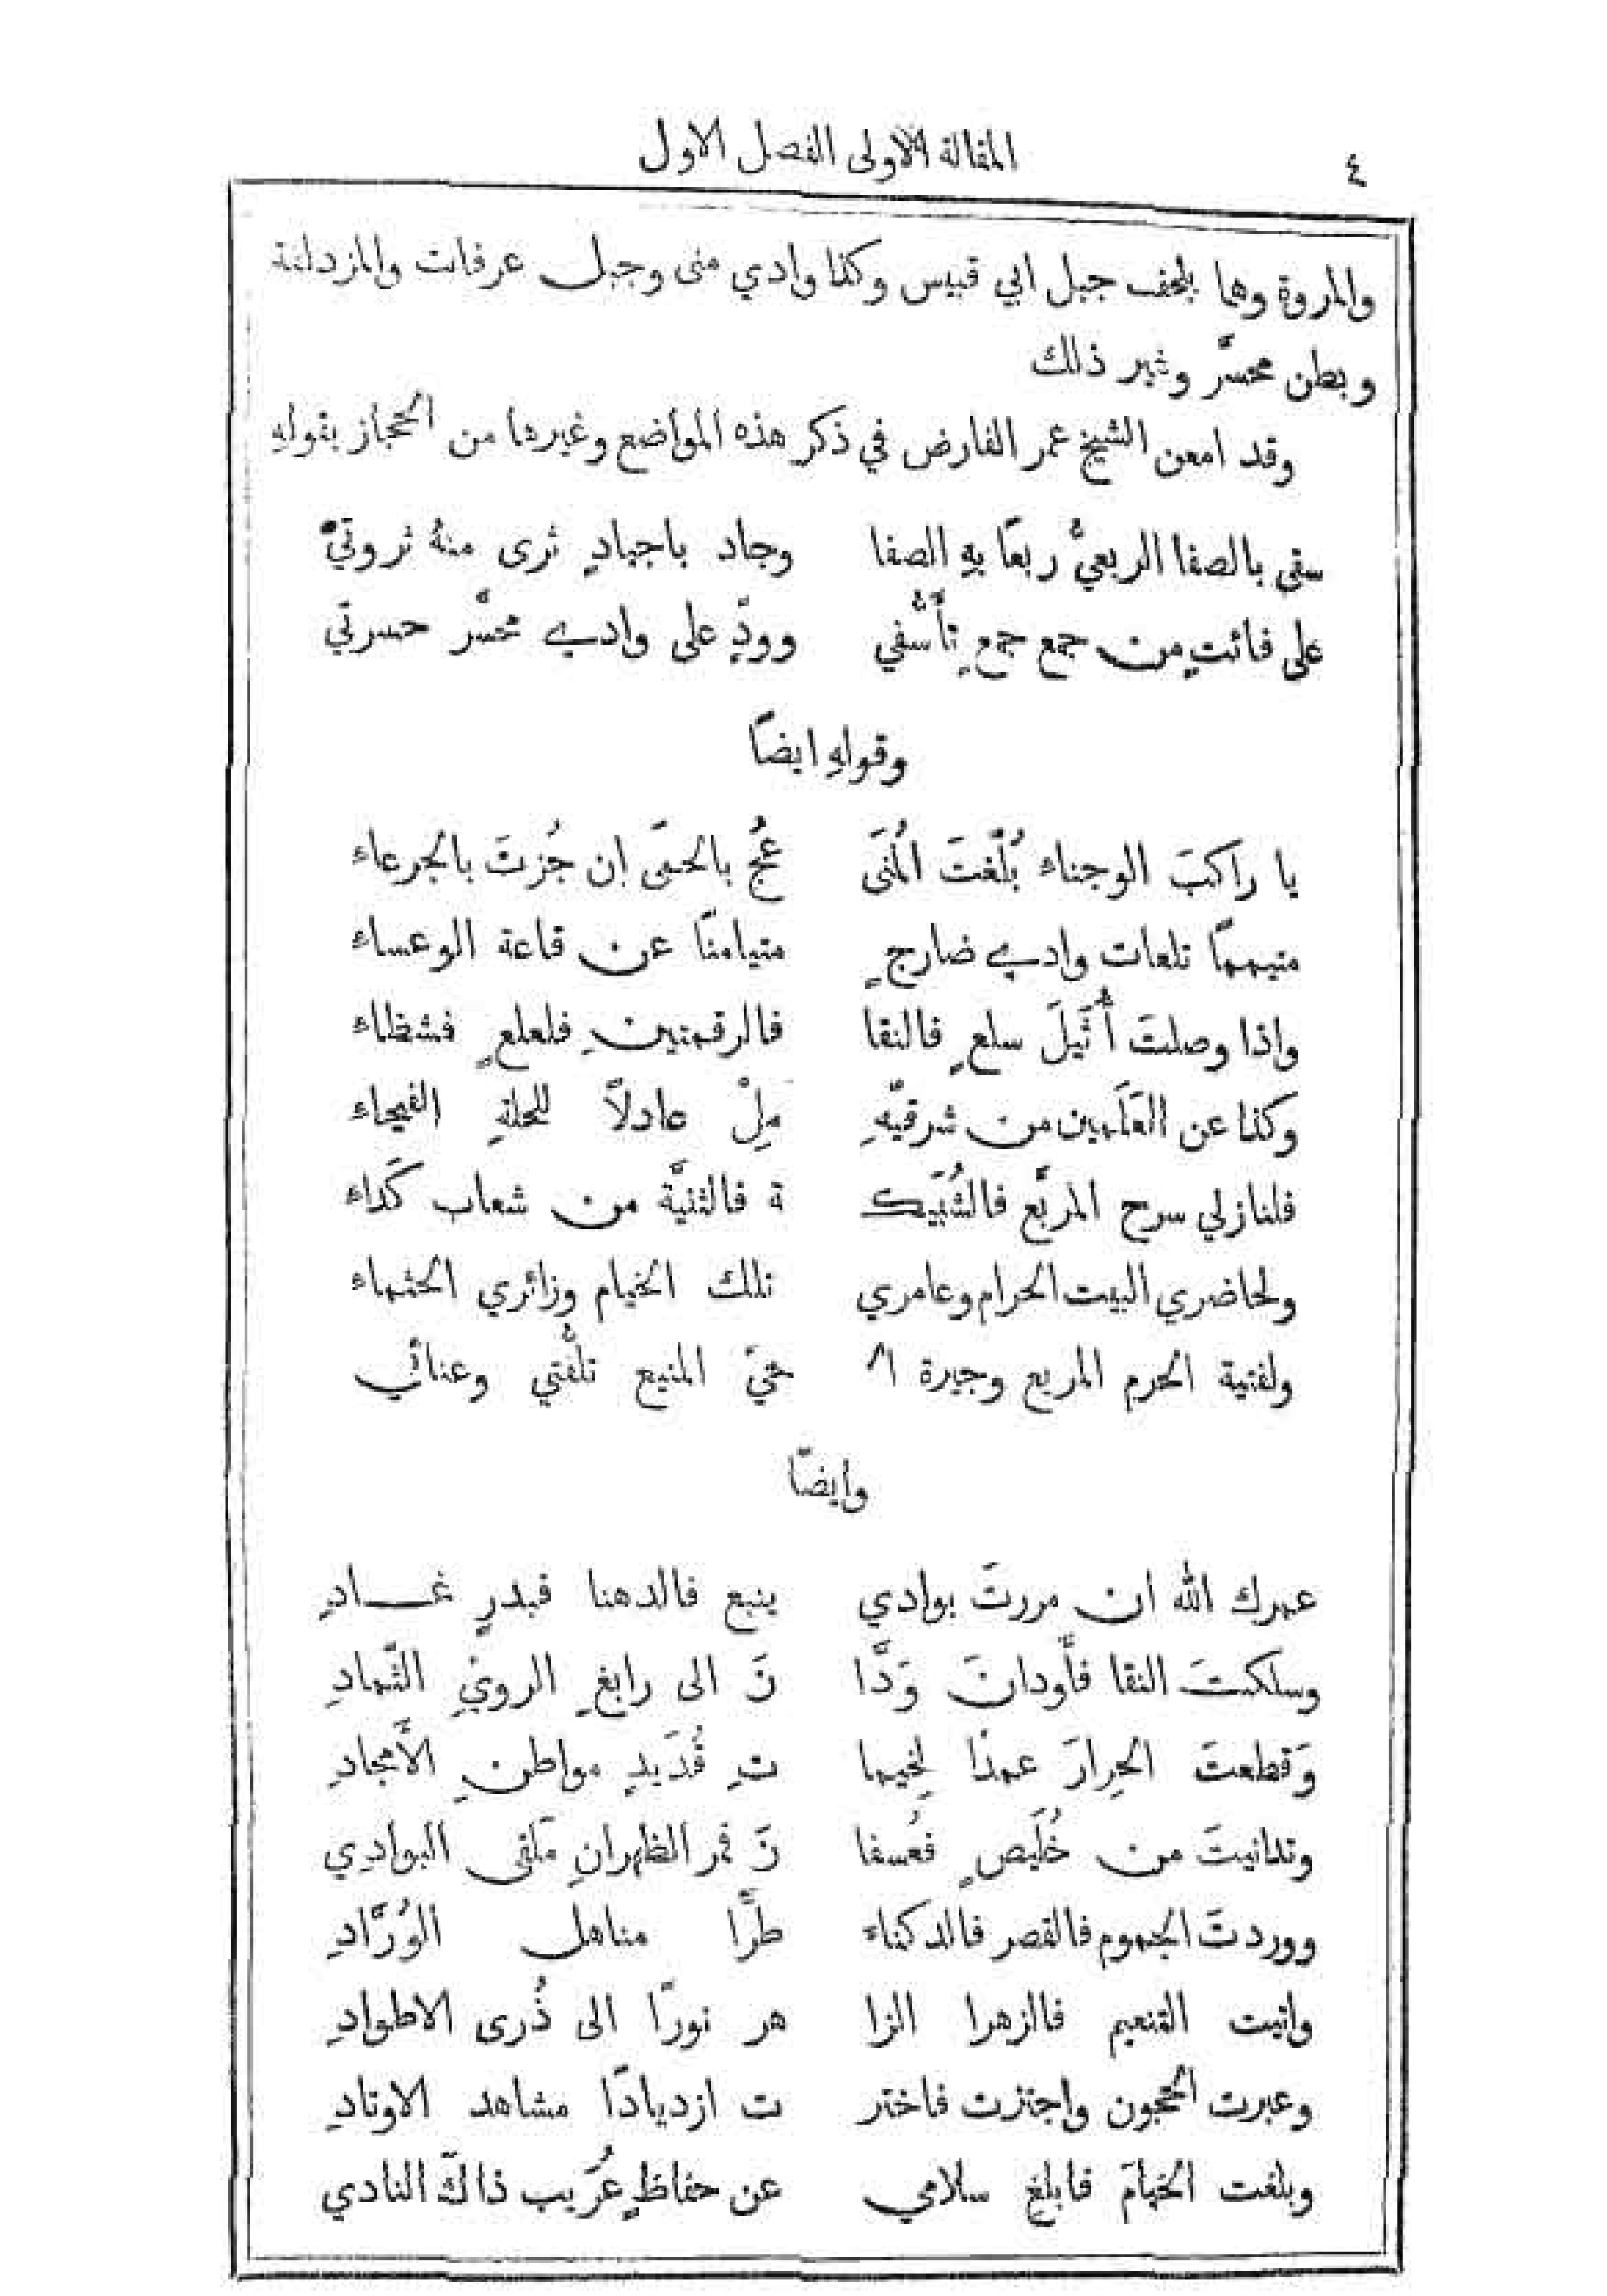 ٤
المقالة الاولى الفصل الاول
والمروة وهما بلحف جبل ابي قبيس وكذا وادي منى وجبل عرفات والمزدلفة
وبطن محسّر وثبير ذلك
وقد امعن الشيخ عمر الفارض في ذكر هذه المواضع وغيرها من الحجاز بقولهِ
سقى بالصفا الربعيُّ ربعًا بهِ الصفا وجاد باجيادٍ ثرى منهُ ثروتيْ
على فائتٍ من جمع جمعٍ تأَسُّفي وودٍّ على وادي محسَّر حسرتي
وقولهِ ايضًا
يا راكبَ الوجناء بُلّغتَ المُنَى عُج بالحمَى إن جُزتَ بالجرعاء
متيممًا تلعات وادي ضارجٍ متيامنًا عن قاعة الوعساء
واذا وصلتَ أُثَيلَ سلعٍ فالنقا فالرقمتينِ فلعلعٍ فشظاء
وكذا عن العَلَمين من شرقيّهِ مِلْ عادلاً للحلةِ الفيحاء
فلنازلي سرح المربَّع فالشُبَيك ة فالثنيَّة من شعاب كَداء
ولحاضري البيت الحرام وعامري تلك الخيام وزائري الحثماء
ولفتية الحرم المريع وجيرة ال حيّ المنيع تلفُّتي وعنائي
وايضًا
عمرك الله ان مررتَ بوادي ينبع فالدهنا فبدرٍ غادِ
وسلكتَ النقا فأَودانَ وَدَّا نَ الى رابغٍ الرويّ الثّمادِ
وَقطعتَ الحِرارَ عمدًا لِخيما تِ قُدَيدٍ مواطنِ الأَمجادِ
وتدانيتَ من خُلَيصٍ فعُسفا نَ فمر الظهرانِ مَلقى البوادِي
ووردتَ الجموم فالقصر فالدكناء طرًّا مناهل الوُرَّادِ
واتيت التنعيم فالزهرا الزا هر نورًا الى ذُرى الاطوادِ
وعبرت الحجون واجتزت فاختر ت ازديادًا مشاهد الاوتادِ
وبلغت الخيامَ فابلغ سلامي عن حفاظٍ عُرَيب ذاكَ النادي